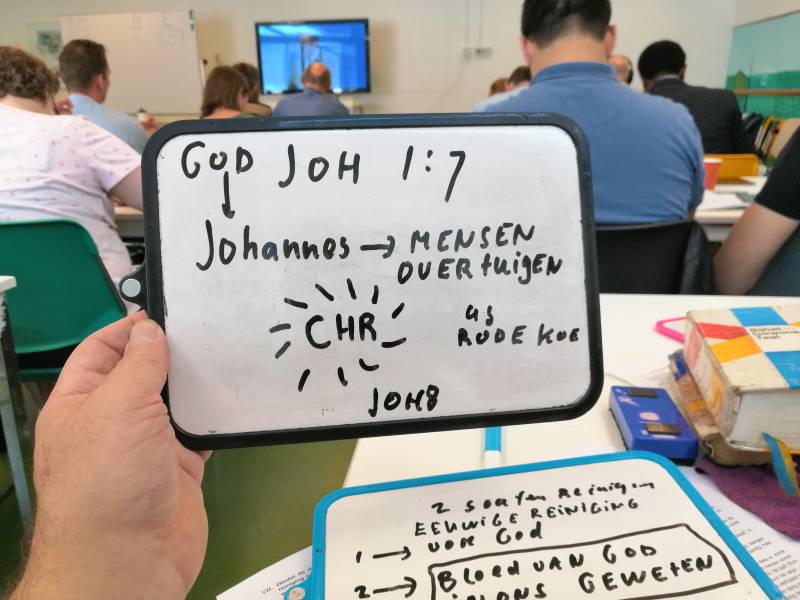 GOD JOH 1:7
Johannes → MENSEN
OVERtuigEN
CHR
as
RODE KOE
JOH8
2 soorten Reinigen
EEUWIGE REINIGING
1 → VOOR God
2 → BloEd VAN GOD
IN ONS GEWETEN
Bijbel in Gewone
Taal